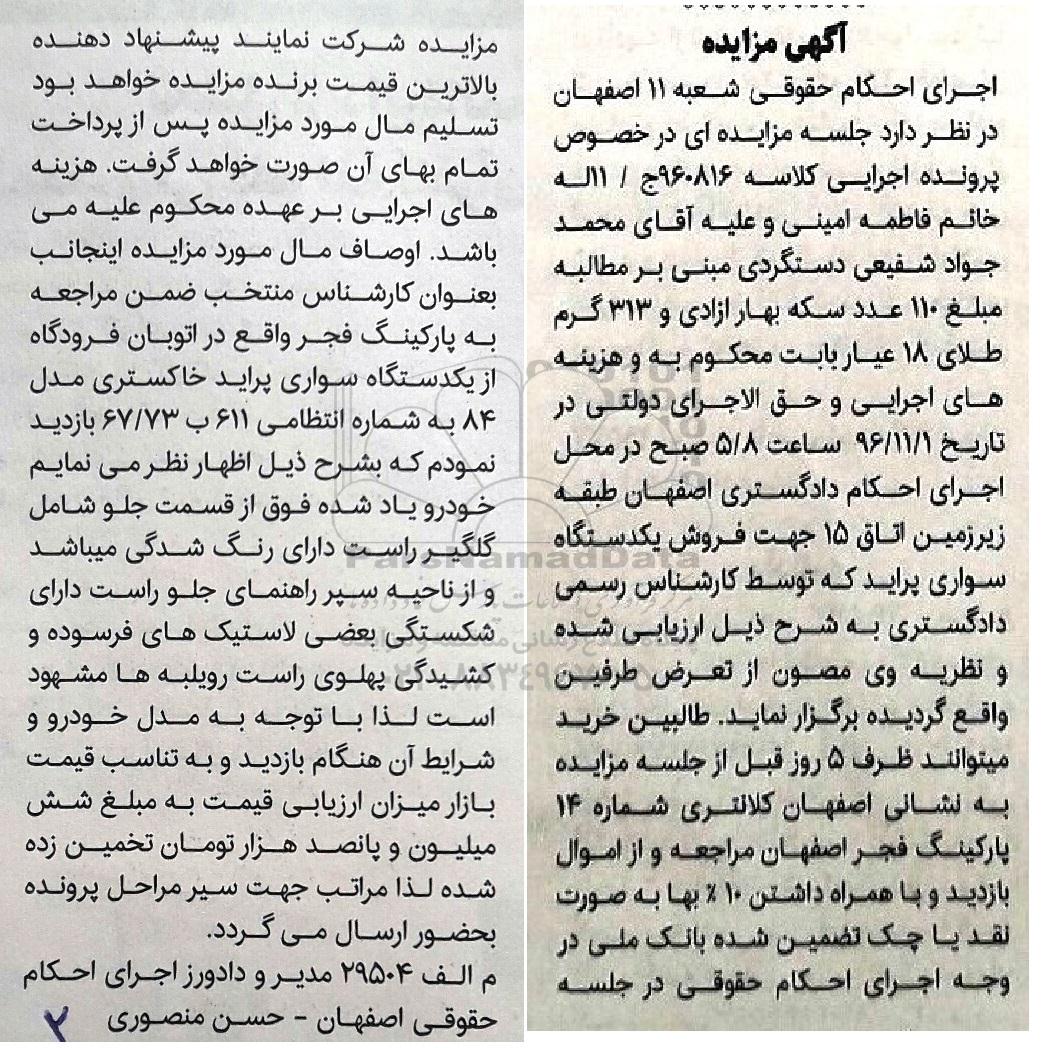 آگهی مزایده
اجرای احکام حقوقی شعبه ۱۱ اصفهان
در نظر دارد جلسه مزایده ای در خصوص
پرونده اجرایی کلاسه ۹۶۰۸۱۶ج / ۱۱له
خانم فاطمه امینی و علیه آقای محمد
جواد شفیعی دستگردی مبنی بر مطالبه
مبلغ ۱۱۰ عدد سکه بهار ازادی و ۳۱۳ گرم
طلای ۱۸ عیار بابت محکوم به و هزینه
های اجرایی و حق الاجرای دولتی در
تاریخ ۹۶/۱۱/۱ ساعت ۵/۸ صبح در محل
اجرای احکام دادگستری اصفهان طبقه
زیرزمین اتاق ۱۵ جهت فروش یکدستگاه
سواری پراید که توسط کارشناس رسمی
دادگستری به شرح ذیل ارزیابی شده
و نظریه وی مصون از تعرض طرفین
واقع گردیده برگزار نماید. طالبین خرید
میتوانند ظرف ۵ روز قبل از جلسه مزایده
به نشانی اصفهان کلانتری شماره ۱۴
پارکینگ فجر اصفهان مراجعه و از اموال
بازدید و با همراه داشتن ۱۰٪ بها به صورت
نقد یا چک تضمین شده بانک ملی در
وجه اجرای احکام حقوقی در جلسه
مزایده شرکت نمایند پیشنهاد دهنده
بالاترین قیمت برنده مزایده خواهد بود
تسلیم مال مورد مزایده پس از پرداخت
تمام بهای آن صورت خواهد گرفت. هزینه
های اجرایی بر عهده محکوم علیه می
باشد. اوصاف مال مورد مزایده اینجانب
بعنوان کارشناس منتخب ضمن مراجعه
به پارکینگ فجر واقع در اتوبان فرودگاه
از یکدستگاه سواری پراید خاکستری مدل
۸۴ به شماره انتظامی ۶۱۱ ب ۶۷/۷۳ بازدید
نمودم که بشرح ذیل اظهار نظر می نمایم
خودرو یاد شده فوق از قسمت جلو شامل
گلگیر راست دارای رنگ شدگی میباشد
و از ناحیه سپر راهنمای جلو راست دارای
شکستگی بعضی لاستیک های فرسوده و
کشیدگی پهلوی راست رویلبه ها مشهود
است لذا با توجه به مدل خودرو و
شرایط آن هنگام بازدید و به تناسب قیمت
بازار میزان ارزیابی قیمت به مبلغ شش
میلیون و پانصد هزار تومان تخمین زده
شده لذا مراتب جهت سیر مراحل پرونده
بحضور ارسال می گردد.
م الف ۲۹۵۰۴ مدیر و دادورز اجرای احکام
حقوقی اصفهان - حسن منصوری
۲
ParsNamadData